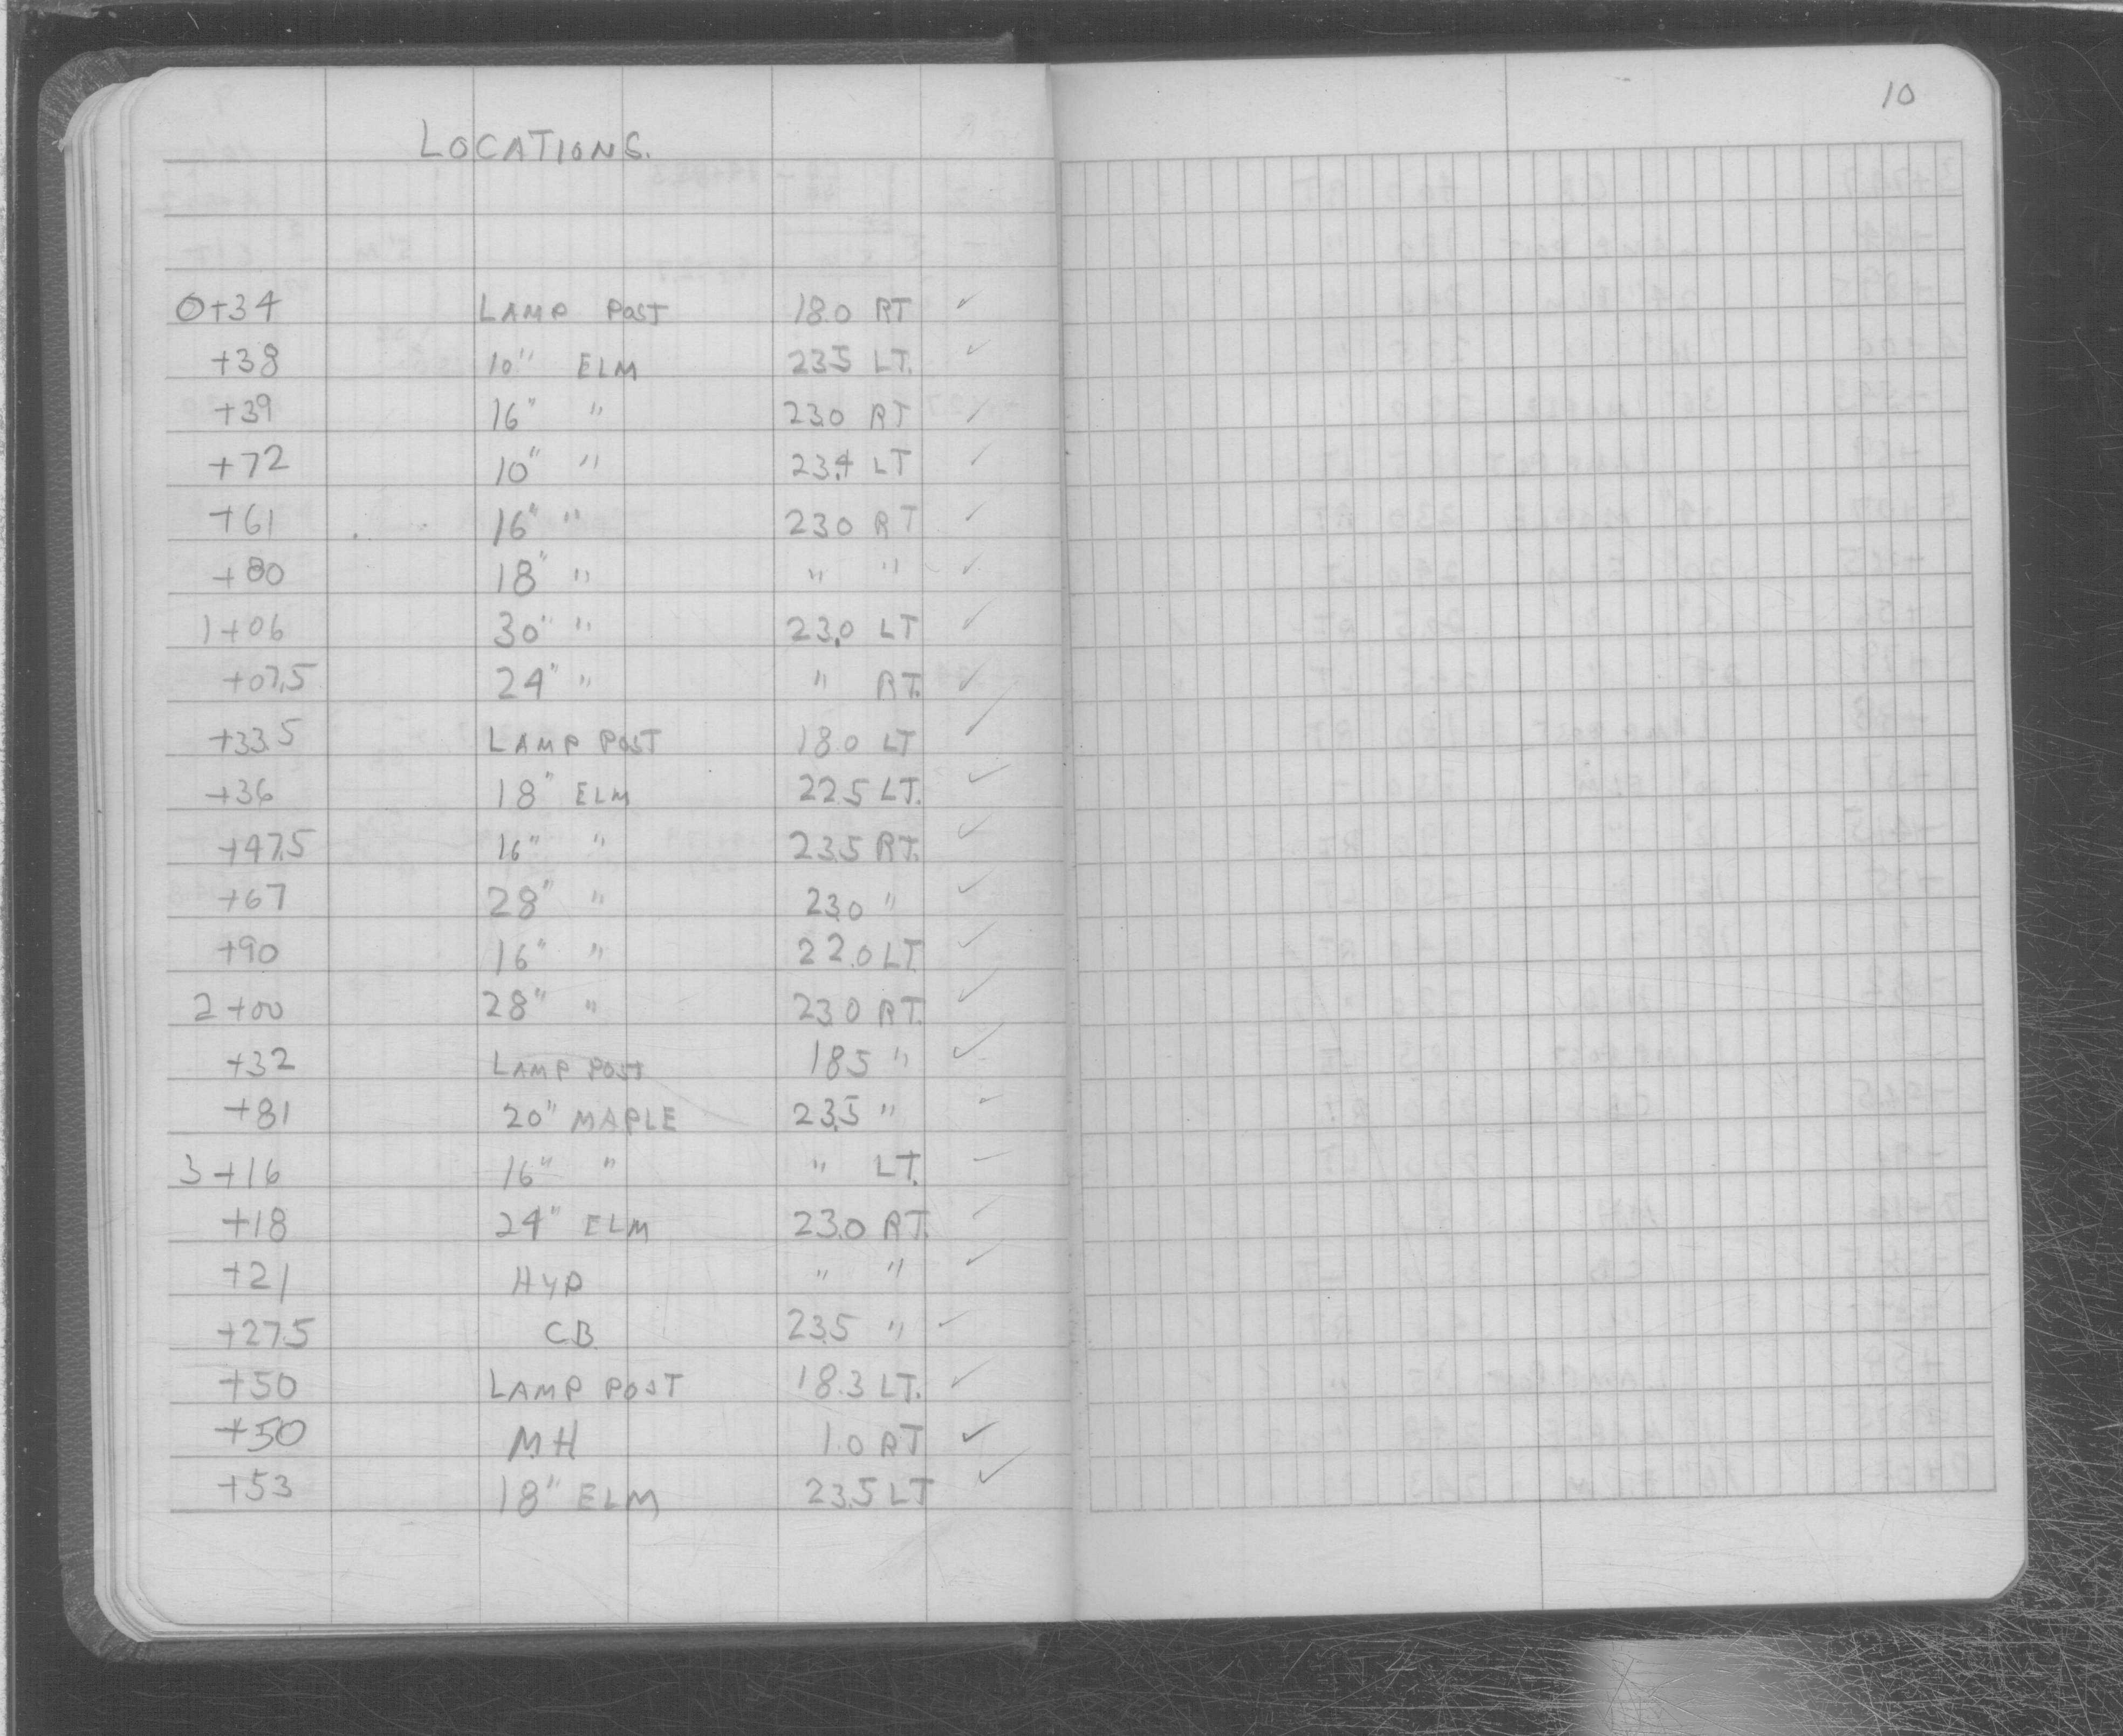 10
LOCATIONS.
0+34 LAMP POST 18.0 RT ✓
+38 10" ELM 23.5 LT. ✓
+39 16" " 23.0 RT ✓
+72 10" " 23.4 LT ✓
+61 16" " 23.0 RT ✓
+80 18" " " " ✓
1+06 30" " 23.0 LT ✓
+07.5 24" " " RT. ✓
+33.5 LAMP POST 18.0 LT ✓
+36 18" ELM 22.5 LT. ✓
+47.5 16" " 23.5 RT. ✓
+67 28" " 23.0 " ✓
+90 16" " 22.0 LT ✓
2+00 28" " 23.0 RT. ✓
+32 LAMP POST 18.5 " ✓
+81 20" MAPLE 23.5 " ✓
3+16 16" " " LT. ✓
+18 24" ELM 23.0 RT. ✓
+21 HYD " " ✓
+27.5 CB 23.5 " ✓
+50 LAMP POST 18.3 LT. ✓
+50 MH 1.0 RT ✓
+53 18" ELM 23.5 LT ✓